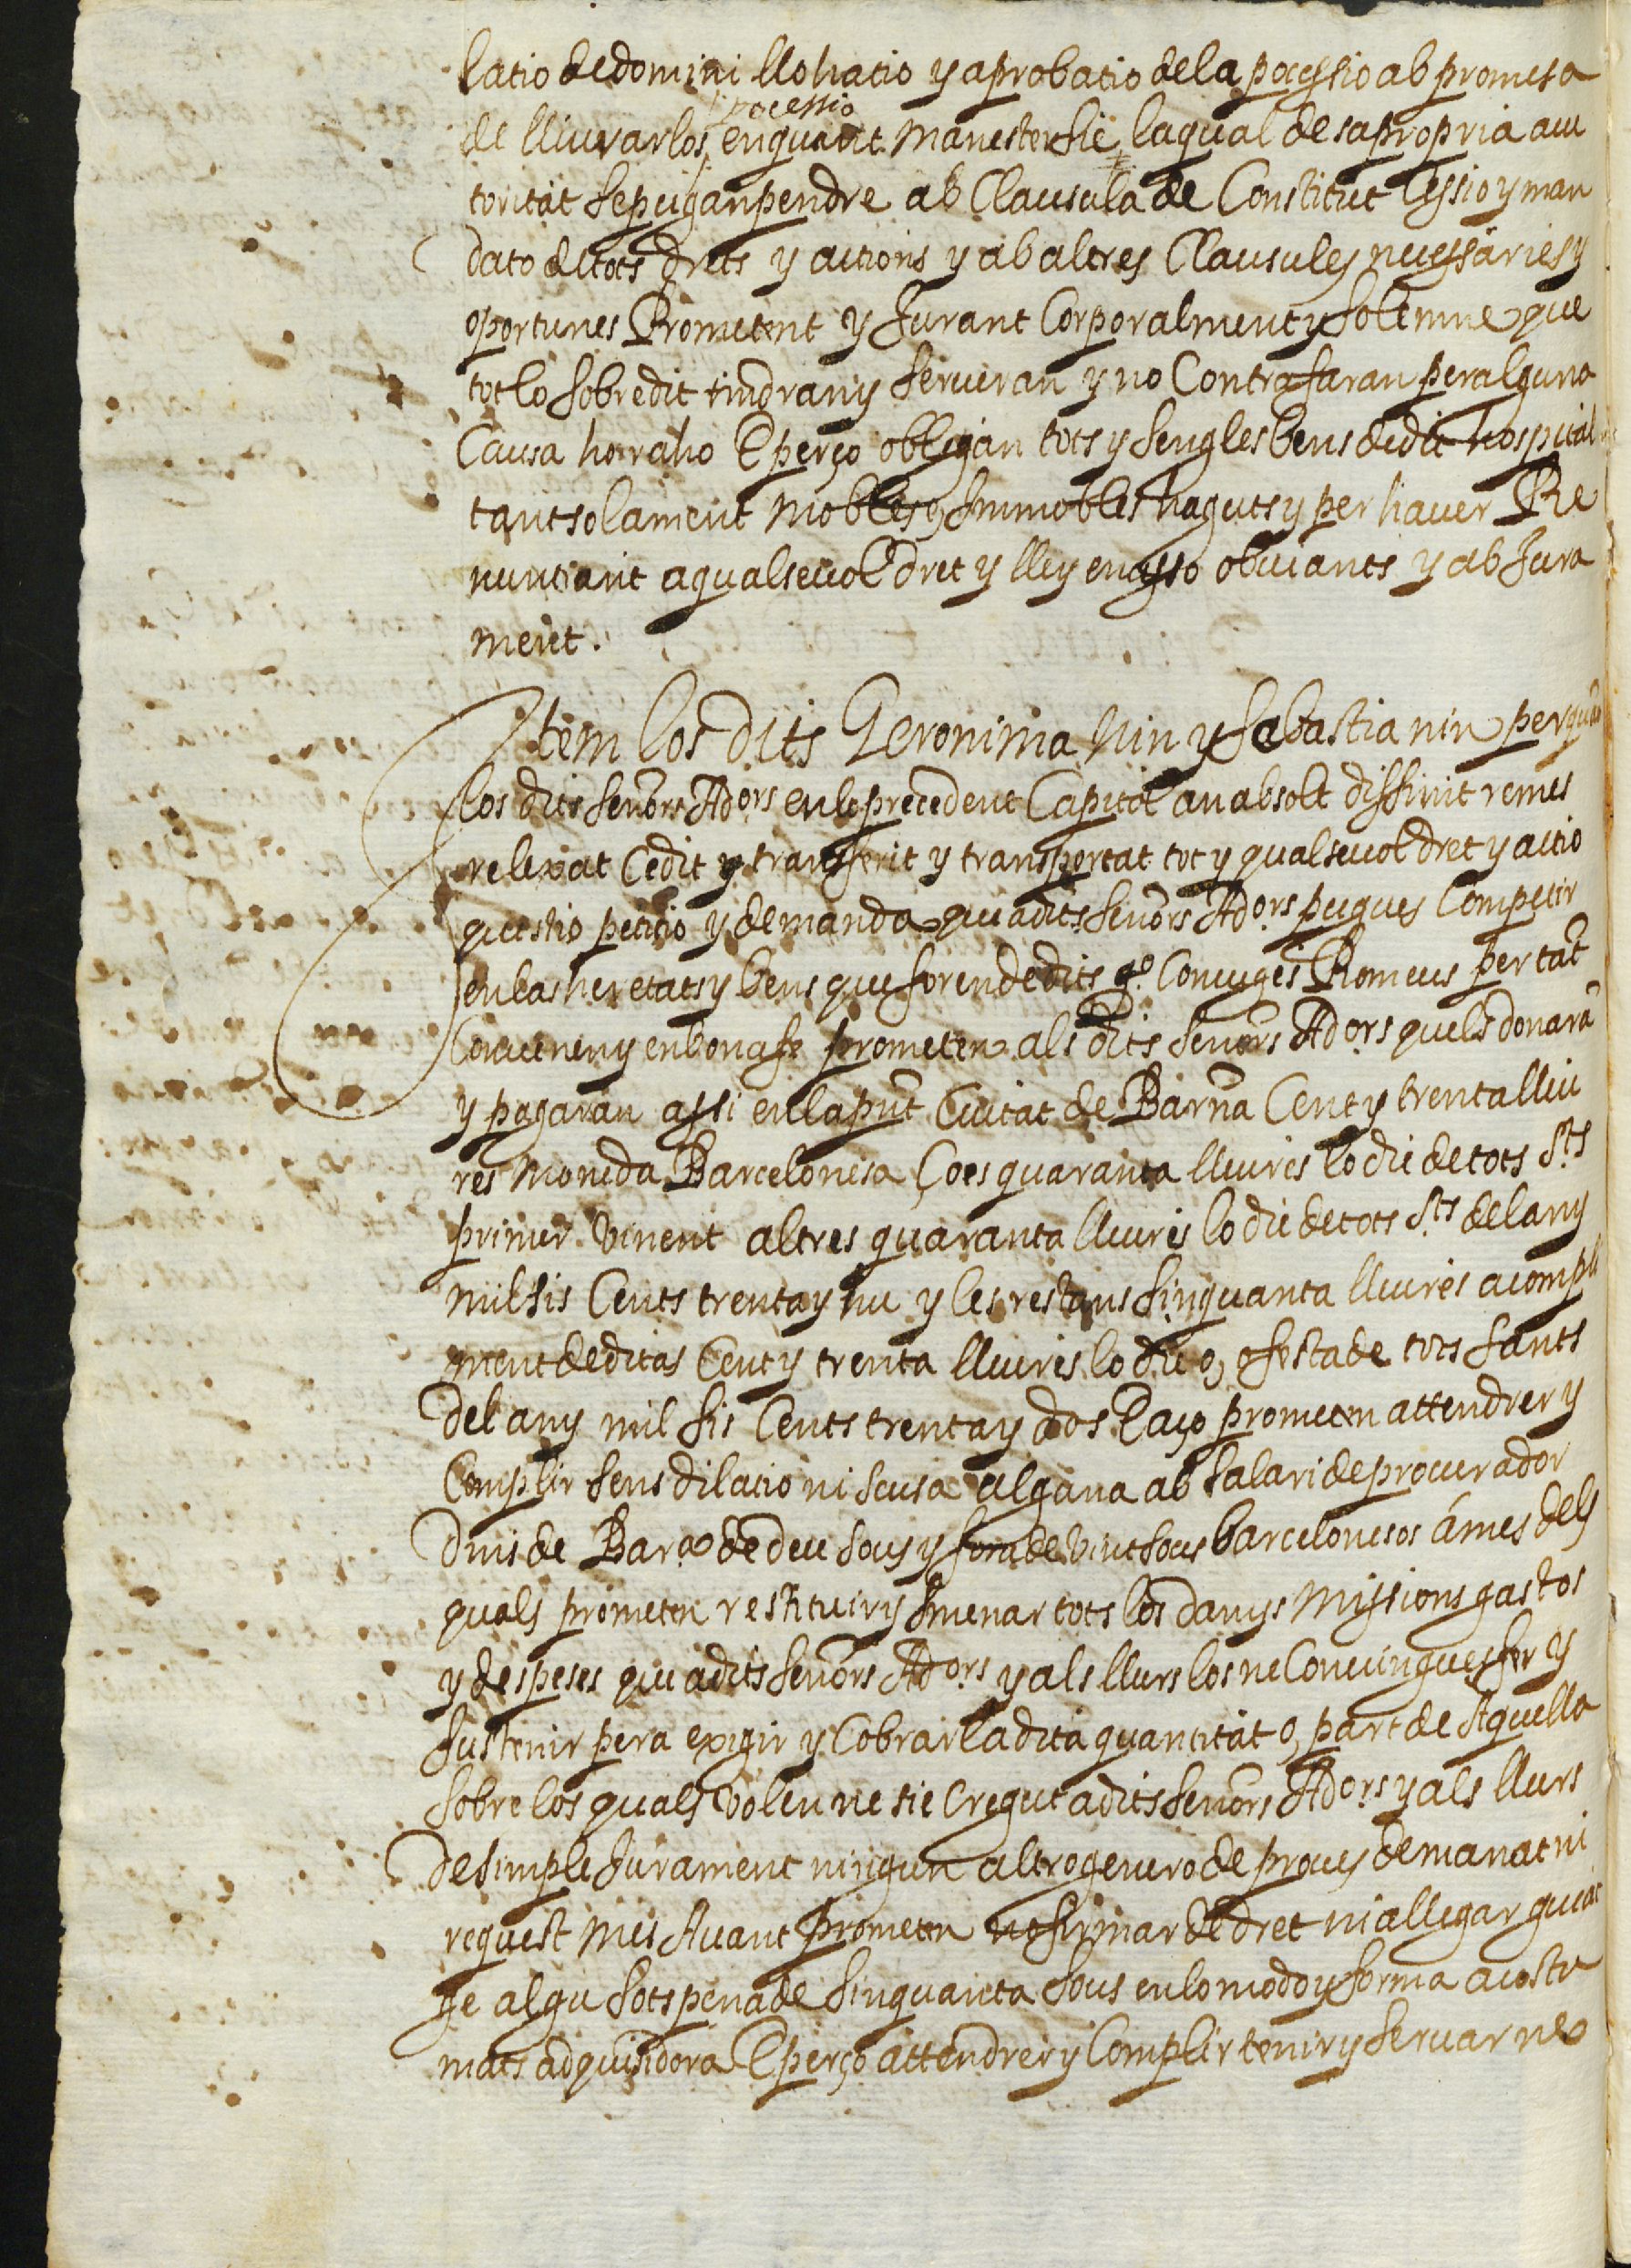 latio de domini llohatio y aprobatio de la pocessio ab promesa
pocessio
de lliurarlos enquant manester sie laqual de sa propria au
toritat se pugan pendre ab Clausula de Constitut Cessio y man
dato de tots drets y actions y ab altres Clausules necessaries y
oportunes Prometent y Jurant Corporalment y solemne que
tot lo sobredit tindran y servaran y no Contrafaran per alguna
Causa ho raho E perço obligan tots y sengles bens de dit hospital
tant solament mobles o, Immobles haguts y per haver Re
nuntiant a qualsevol dret y lley en asso obviants y ab Jura
ment.
Item los dits Geronima Nin y Sabastia nin per quant
los dits senors Adors en lo precedent Capitol an absolt diffinit remes
relexat Cedit y transferit y transportat tot y qualsevol dret y actio
questio petitio y demanda que a dits senors Adors pugues Competir
en las heretats y bens que foren de dits qo. Conuges Romeus per tat
Convenen y en bona fe prometen als dits senors Adors quels donara
y pagaran assi en la pnt Ciutat de Barna Cent y trenta lliu
res moneda Barcelonesa Ço es quaranta lliures lo die de tots Sts
primer vinent altres quaranta lliures lo die de tots Sts del any
mil sis Cents trenta y hu y les restans sinquanta lliures a compli
ment de ditas Cent y trenta lliures lo die o, festa de tots sants
del any mil sis Cents trenta y dos E aço prometen attendrer y
Complir sens dilatio ni scusa alguna ab salari de procurador
dins de Bara de deu sous y fora de vint sous barcelonesos ámes dels
quals prometen restituir y smenar tots los danys missions gastos
y despeses que a dits senors Adors y als llurs los ne Convingues fer y
sustenir pera exigir y Cobrar la dita quantitat o, part de Aquella
sobre los quals volen ne sie Cregut a dits senors Adors y als llurs
de simple Jurament ningun altro genero de proves demanat ni
request mes Avant prometen no firmar de dret ni allegar guiat
ge algu sots pena de sinquanta sous en lo modo y forma acostu
mats adquisidora E perço attendrer y Complir tenir y servar ne